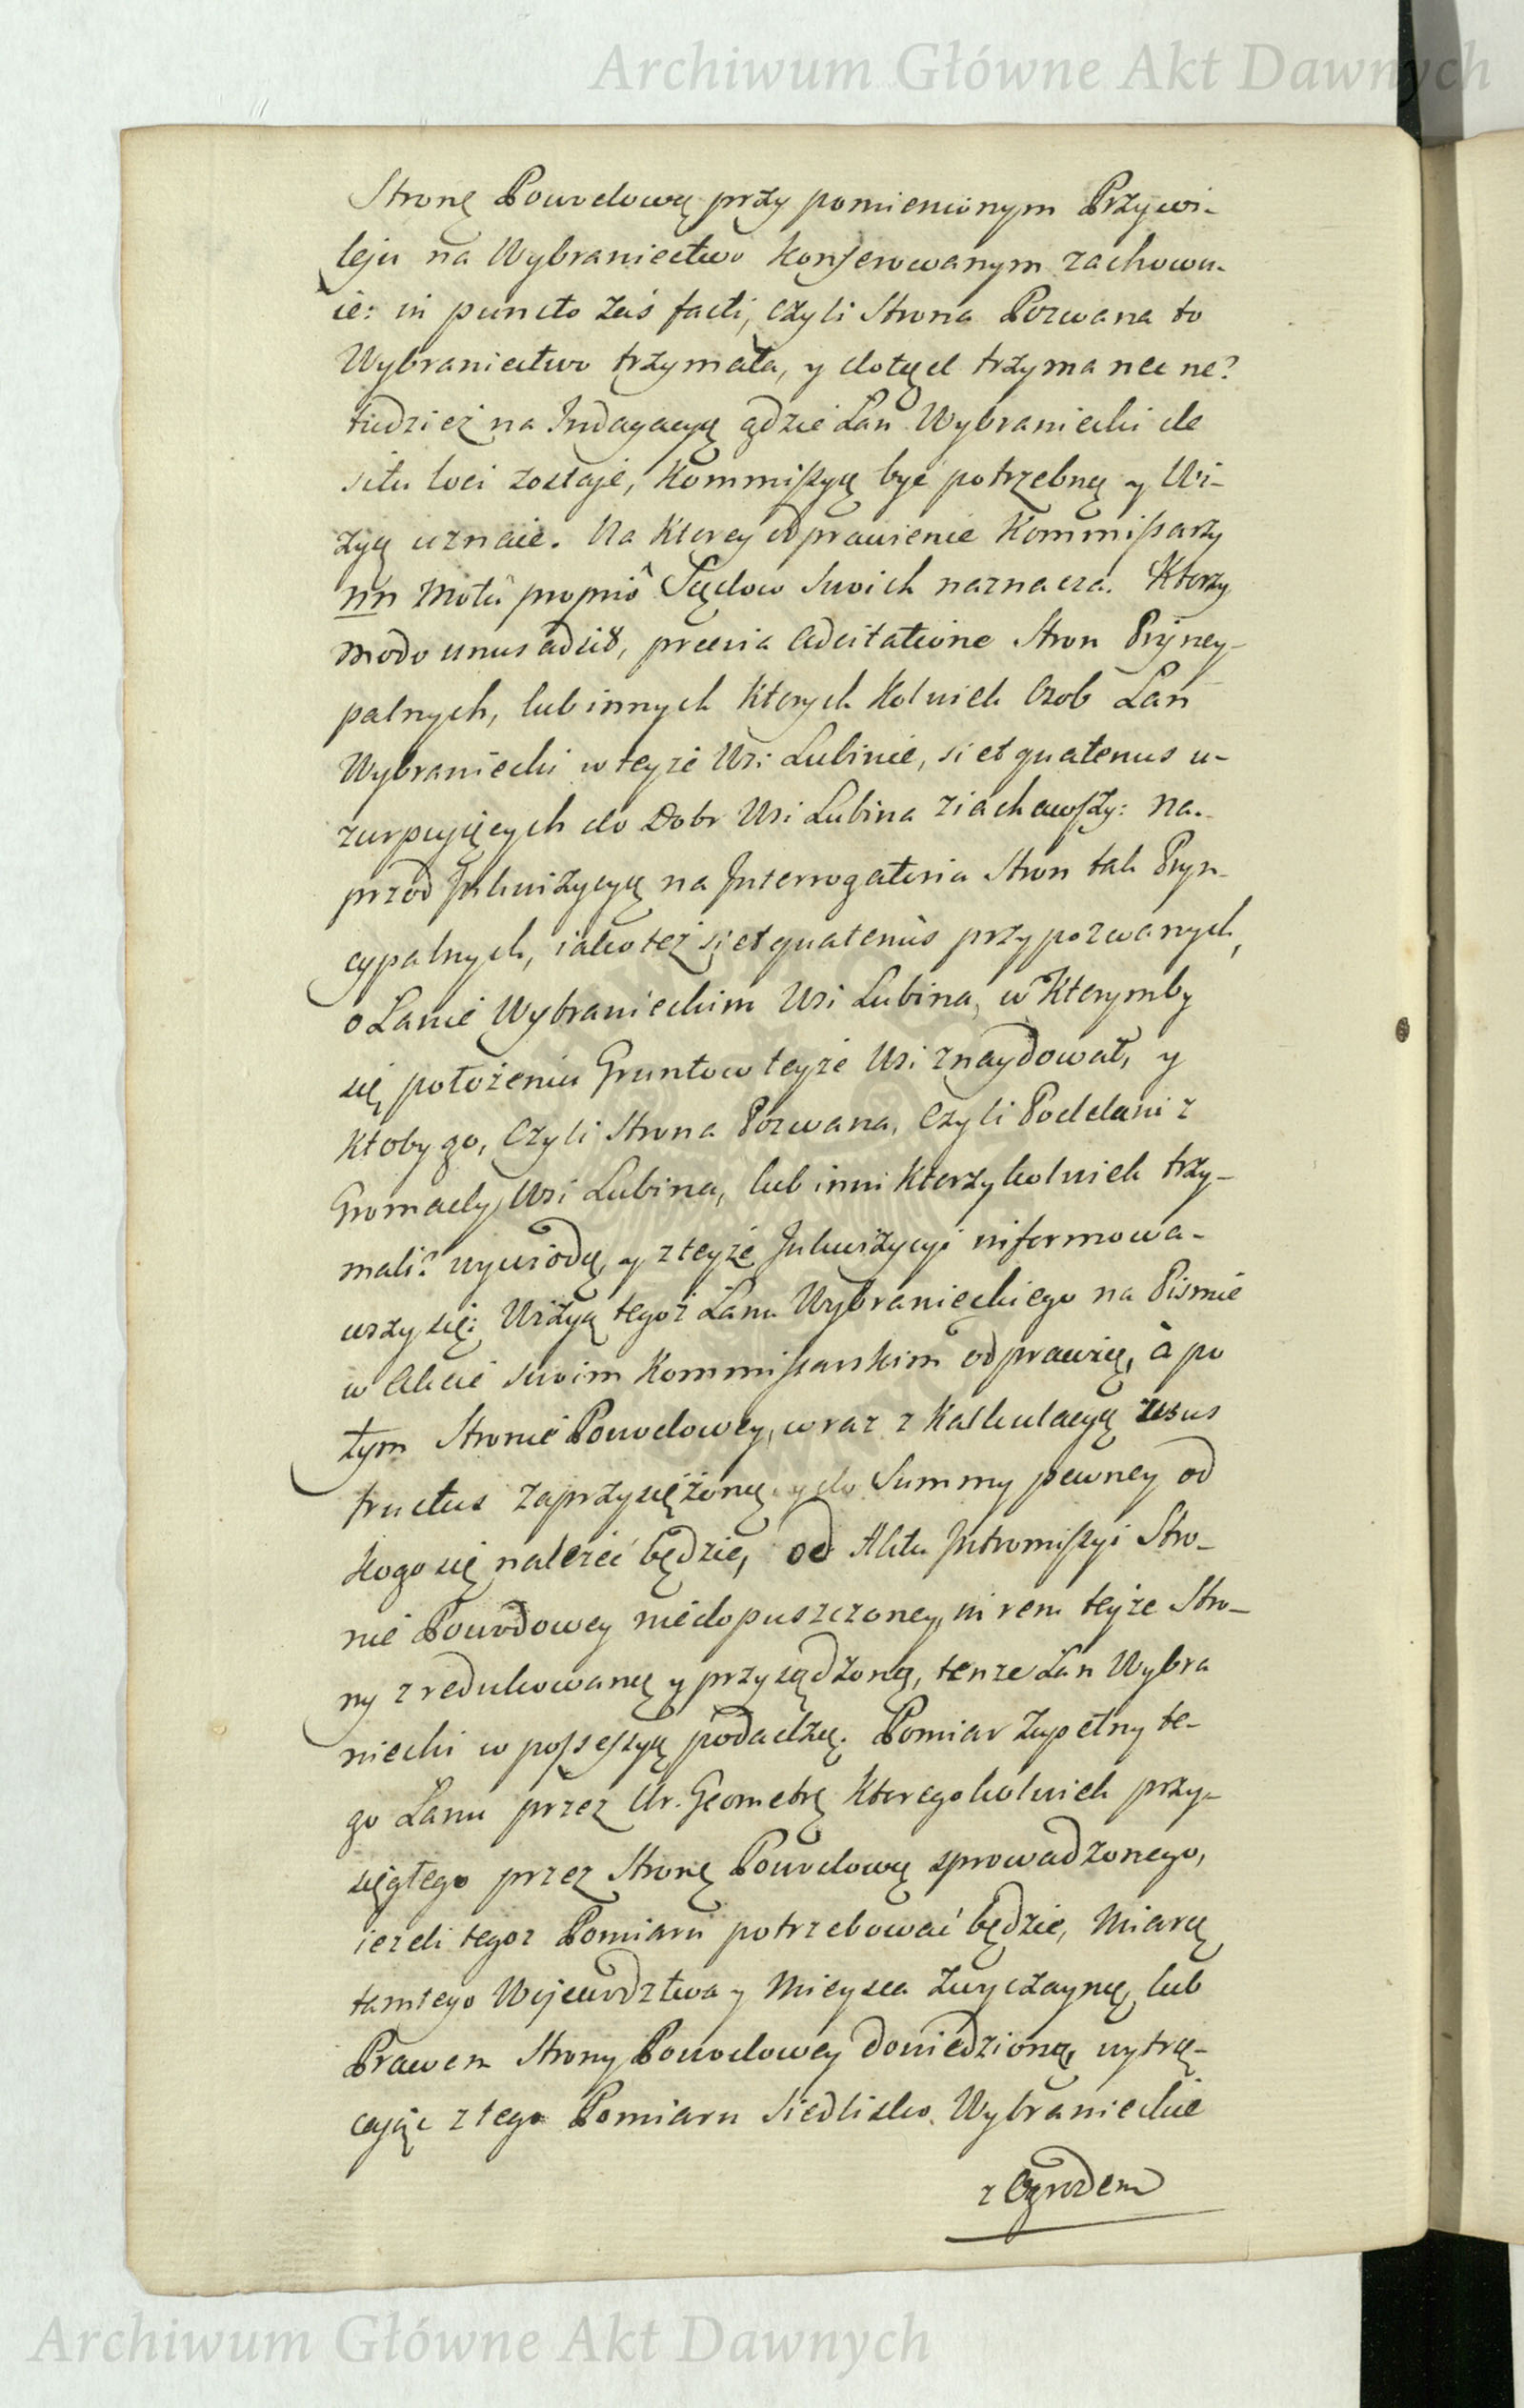 Archiwum Główne Akt Dawnych
Stronę Powodową przy pomienionym Przywi-
leju na Wybraniectwo konferowanym zachowu-
ie: in puncto zaś facti, czyli Strona Pozwana to
Wybraniectwo trzymała, y dotąd trzyma nec ne?
tudzież na Indagacyą gdzie Łan Wybraniecki de
situ loci zostaje, Kommissyą być potrzebną y Wi-
zyą uznaie. Na ktorey odprawienie Kommissarzy
nn Motû propriô Sędziow swoich naznacza. Ktorzy
modo unus adsit, prævia Adcitatione Stron Pryncy-
palnych, lub innych ktorych kolwiek Osob Łan
Wybraniecki w teyże Wsi Lubinie, si et quatenus u-
zurpujących do Dobr Wsi Lubina ziachawszy: na-
przod Inkwizycyą na Interrogatoria Stron tak Pryn-
cypalnych, iako też si et quatenus przypozwanych,
o Łanie Wybranieckim Wsi Lubina, w ktorymby
się położeniu Gruntow teyże Wsi znaydował, y
ktoby go, Czyli Strona Pozwana, Czyli Poddani z
Gromady Wsi Lubina, lub inni ktorzykolwiek trzy-
mali? wywiodą, y z teyże Inkwizycyi informowa-
wszy się: Wizyą tegoż Łanu Wybranieckiego na Pismie
w Akcie swoim Kommissarskim odprawią, à po
tym Stronie Powodowey, wraz z Kalkulacyą usus
fructus zaprzysiężoną, y do Summy pewney od
kogo się należeć będzie, od Aktu Intromissyi Stro-
nie Powodowey niedopuszczoney, in rem teyże Stro-
ny zredukowaną y przysądzoną, tenże Łan Wybra
niecki w possessyą podadzą. Pomiar zupełny te-
go Łanu przez Ur. Geometrę ktoregokolwiek przy-
sięgłego przez Stronę Powodową sprowadzonego,
ieżeli tegoż Pomiaru potrzebować będzie, Miarą
tamtego Wojewodztwa y Mieysca zwyczayną, lub
Prawem Strony Powodowey dowiedzioną, wytrą-
cając z tego Pomiaru Siedlisko Wybranieckie
z Ogrodem
Archiwum Główne Akt Dawnych